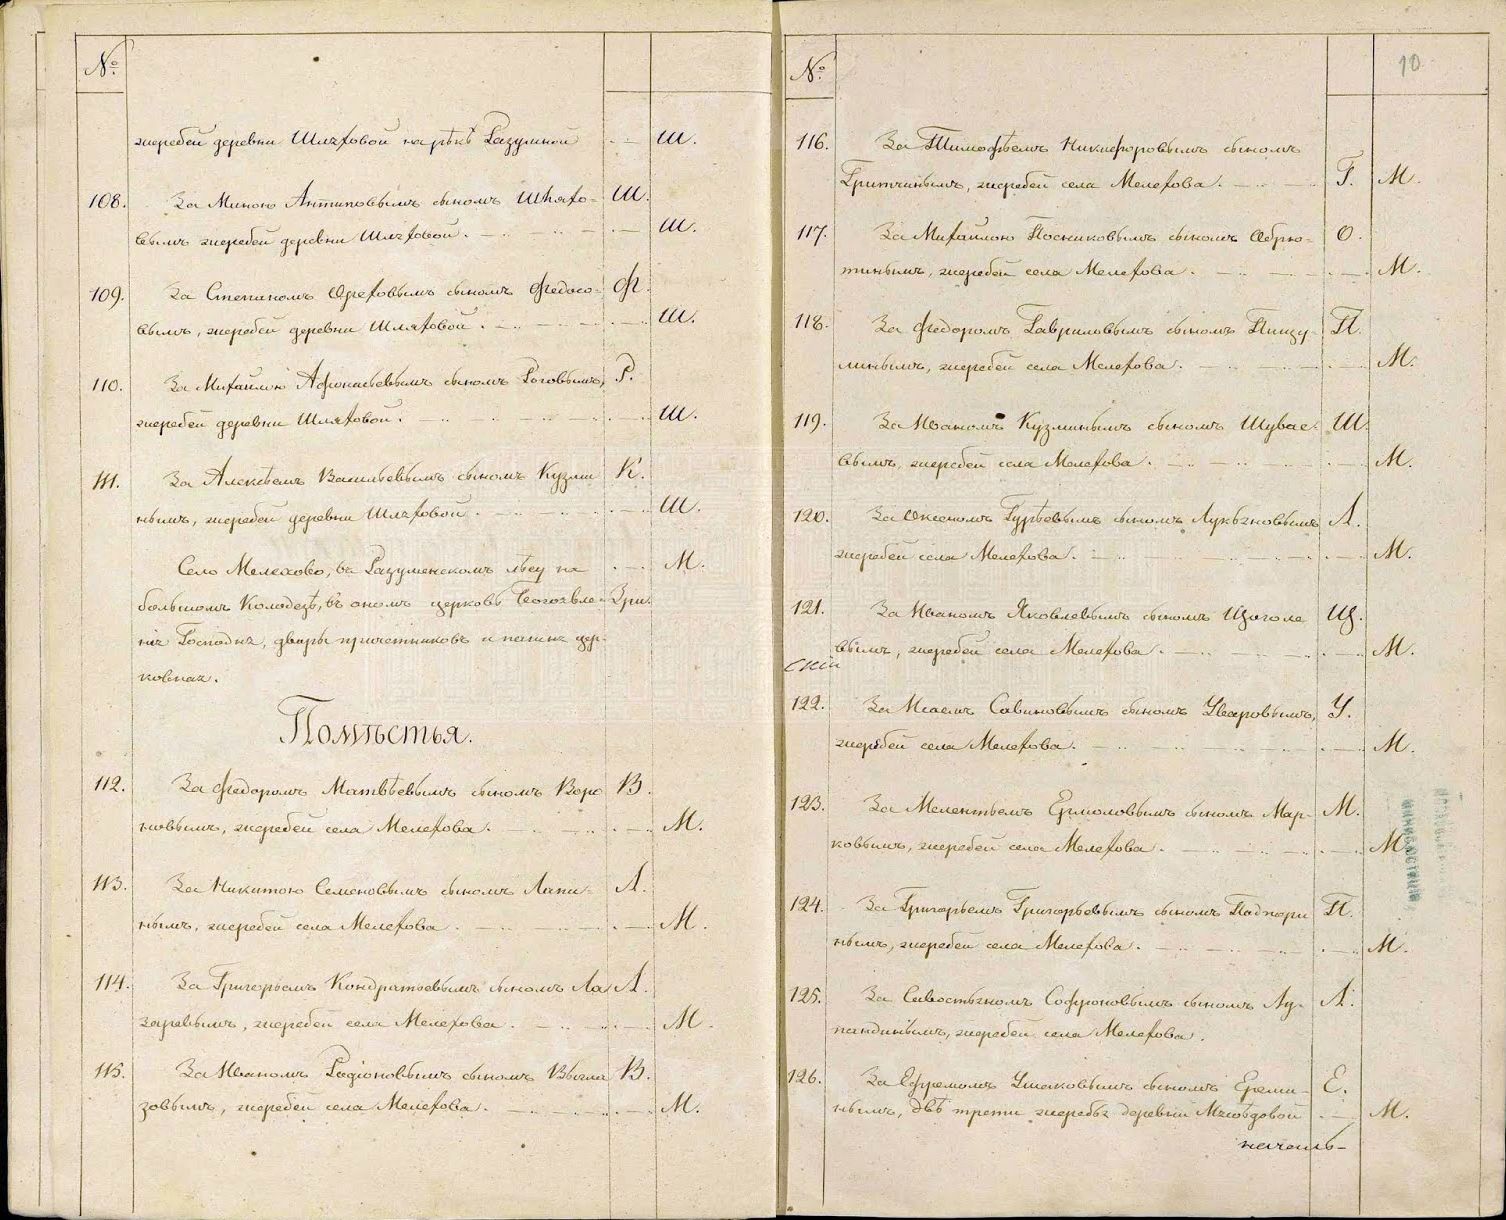 №
жеребей деревни Шляховой на рѣкѣ Разумной Ш.
108. За Миною Антиповымъ сыномъ Шляхо- Ш.
вымъ жеребей деревни Шляховой. Ш.
109. За Степаномъ Ореховымъ сыномъ Федосо- Ф.
вымъ, жеребей деревни Шляховой. Ш.
110. За Михайлою Афонасьевымъ сыномъ Роговымъ, Р.
жеребей деревни Шляховой. Ш.
111. За Алексѣемъ Васильевымъ сыномъ Кузми К.
нымъ, жеребей деревни Шляховой. Ш.
Село Мелехово, въ Разуменскомъ лѣсу на М.
большомъ Колодезѣ, въ ономъ церковь Богоявле- Зри.
нія Господня, дворы причетниковъ и пашня цер-
ковная.
Помѣстья.
112. За Федоромъ Матвѣевымъ сыномъ Воро В.
новымъ, жеребей села Мелехова. М.
113. За Никитою Семеновымъ сыномъ Лапи- Л.
нымъ, жеребей села Мелехова. М.
114. За Григорьемъ Кондратьевымъ сыномъ Ла Л.
заревымъ, жеребей села Мелехова. М.
115. За Иваномъ Радіоновымъ сыномъ Выгла В.
зовымъ, жеребей села Мелехова. М.
№
10
116. За Тимофѣемъ Никифоровымъ сыномъ
Гритчинымъ, жеребей села Мелехова. Г. М.
117. За Михайлою Посниковымъ сыномъ Обрю- О.
тинымъ, жеребей села Мелехова. М.
118. За Федоромъ Гавриловымъ сыномъ Пицу- П.
линымъ, жеребей села Мелехова. М.
119. За Иваномъ Кузминымъ сыномъ Шувае- Ш.
вымъ, жеребей села Мелехова. М.
120. За Оксеномъ Гурѣевымъ сыномъ Лукьяновымъ Л.
жеребей села Мелехова. М.
121. За Иваномъ Яковлевымъ сыномъ Щоголе Щ.
вымъ, жеребей села Мелехова. М.
122. За Исаемъ Савиновымъ сыномъ Уваровымъ, У.
жеребей села Мелехова. М.
123. За Мелентьемъ Ермоловымъ сыномъ Мар- М.
ковымъ, жеребей села Мелехова. М.
124. За Григорьемъ Григорьевымъ сыномъ Падпори П.
нымъ, жеребей села Мелехова. М.
125. За Савостьяномъ Софроновымъ сыномъ Лу- Л.
пандинымъ, жеребей села Мелехова.
126. За Ефремомъ Ушаковымъ сыномъ Ереми- Е.
нымъ, двѣ трети жеребья деревни М.